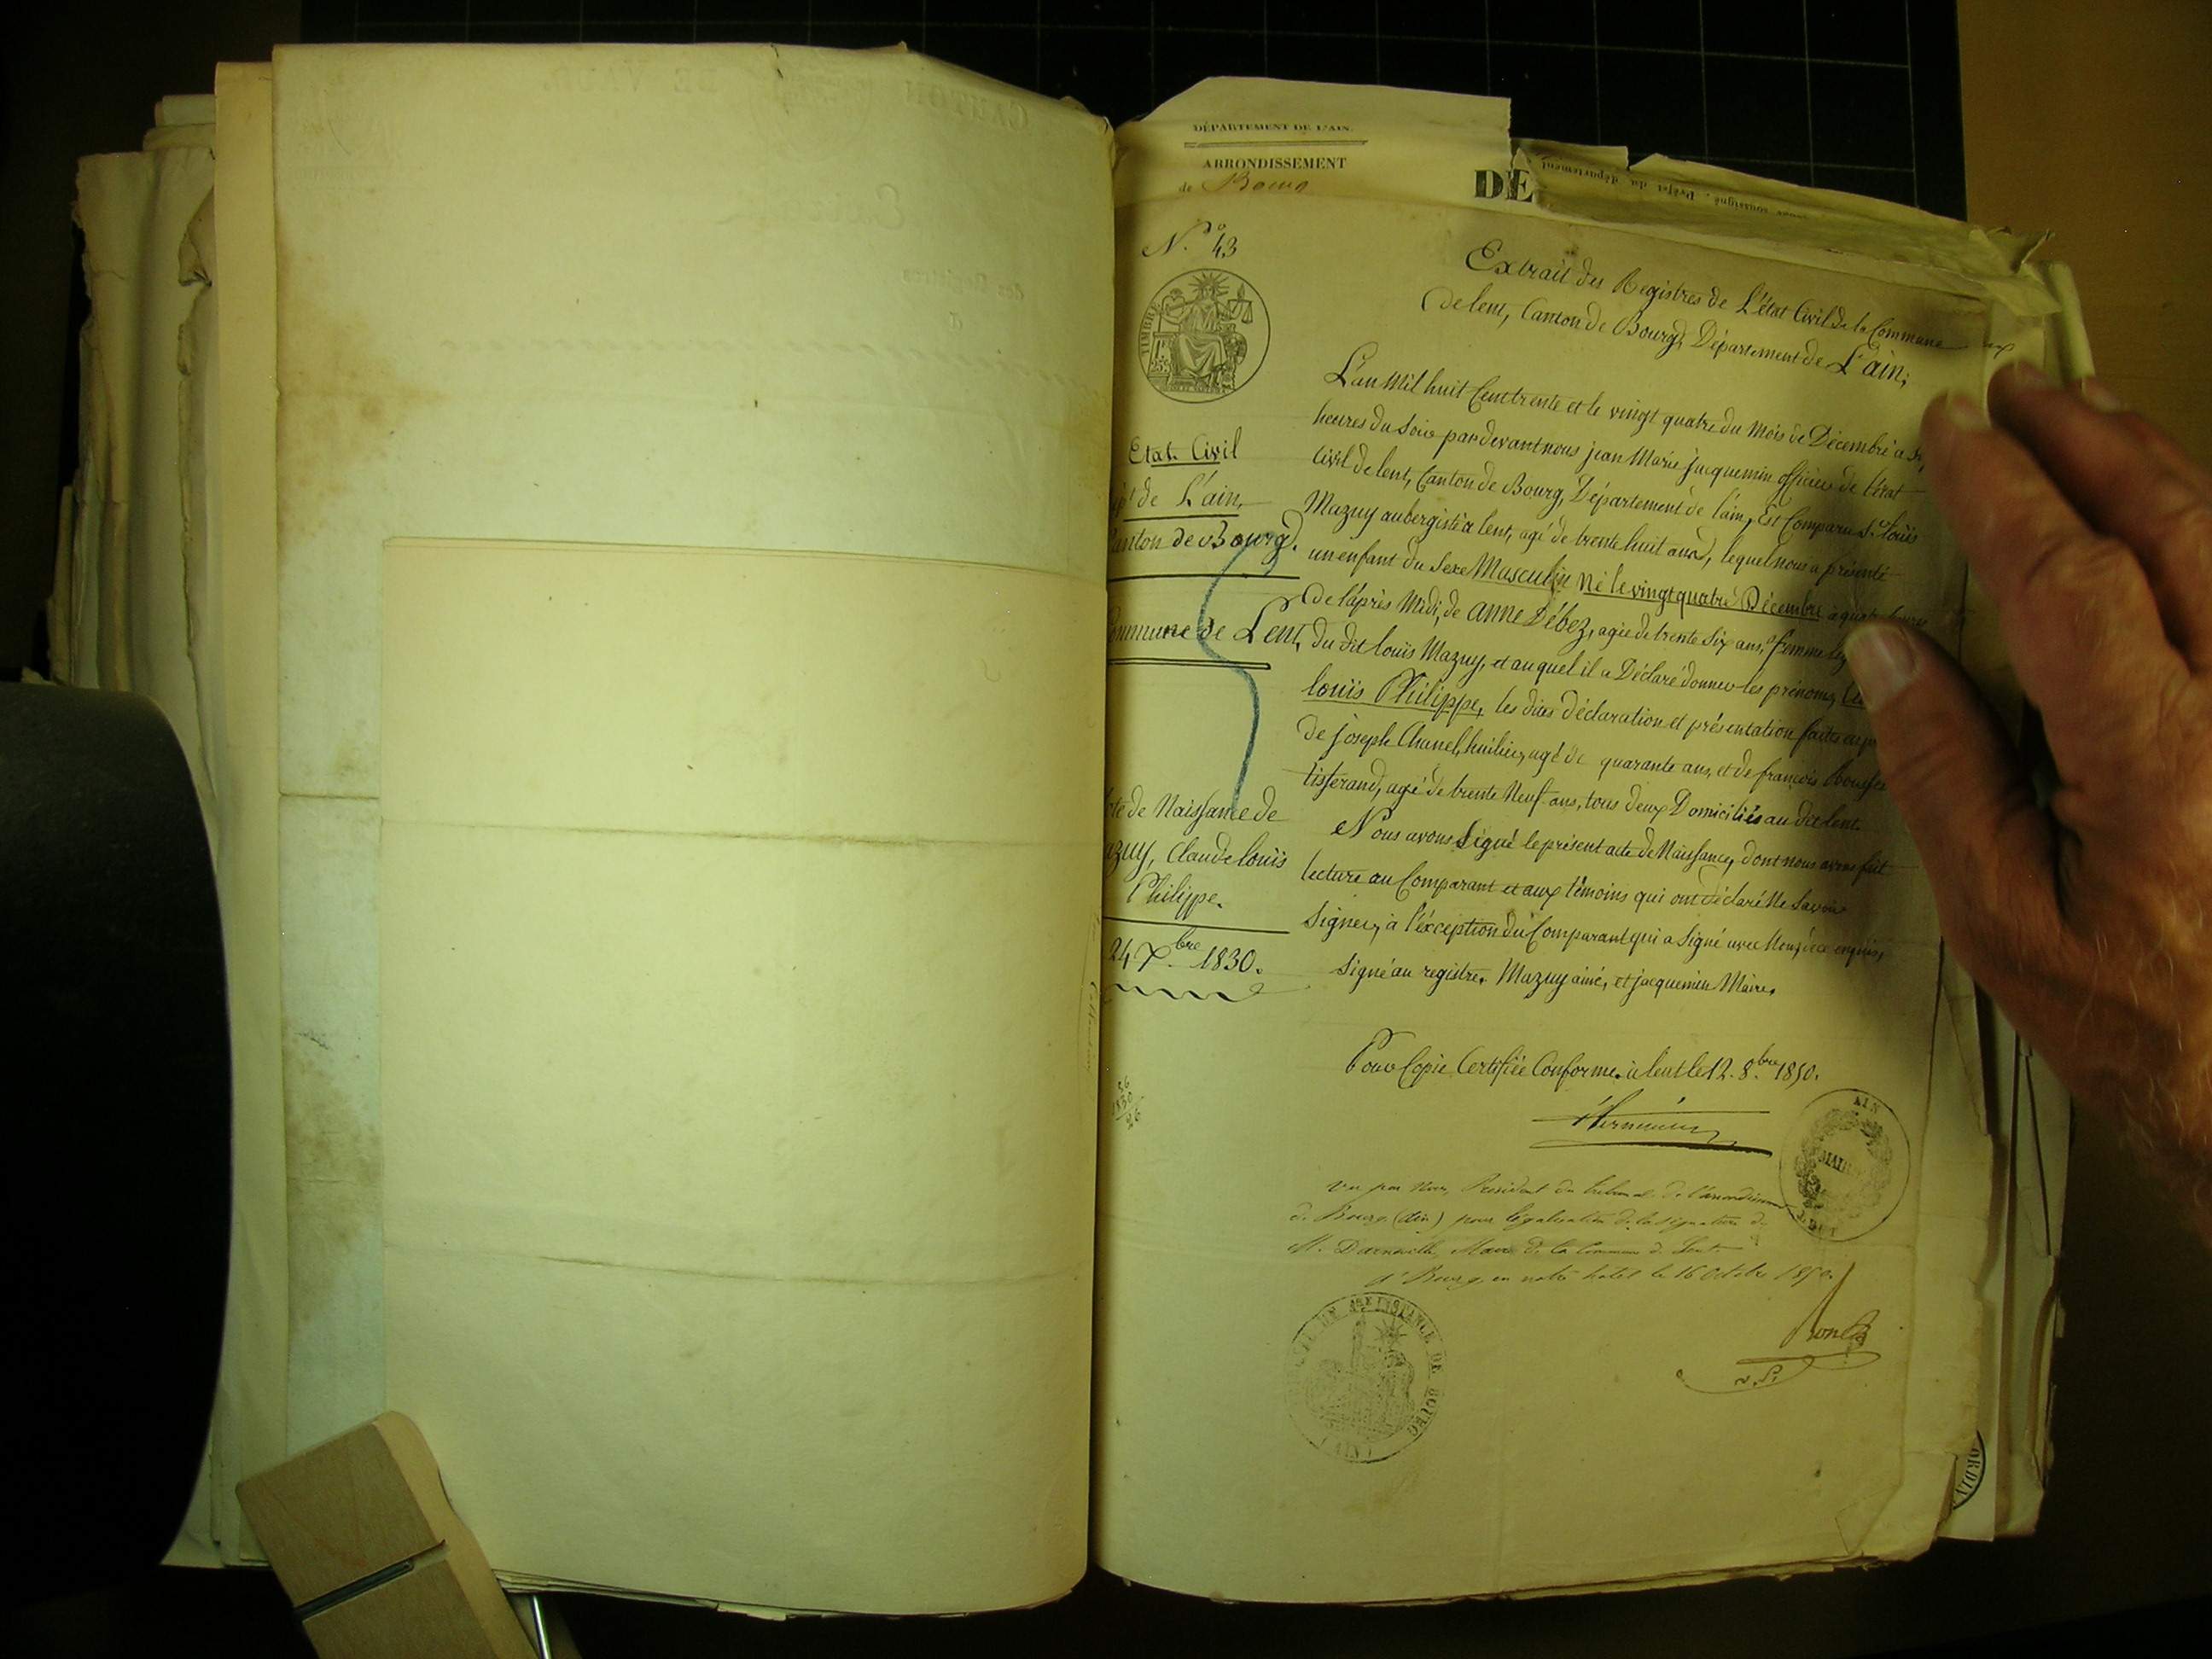 DÉPARTEMENT DE L'AIN.
ARRONDISSEMENT
de Bourg
DE
soussigné, Préfet du département
N.º 43
TIMBRE
Extrait des Registres de L'état Civil de la Commune
de lent, Canton de Bourg, Département de L'ain;
Etat Civil
de L'ain,
Canton de Bourg.
Commune de Lent,
de Naissance de
Claude louis
Philippe.
24 Xbre 1830.
L'an Mil huit Cent trente et le vingt quatre du Mois de Décembre à
heures du Soir par devant nous jean Marie jacquemin officier de l'état
Civil de lent, Canton de Bourg, Département de l'ain, Est Comparu Sr. louis
Mazuy aubergiste à lent, agé de trente huit ans, lequel nous a présenté
un enfant du Sexe Masculin Né le vingt quatre Décembre à quatre heures
de l'après Midi, de Anne Débez, agée de trente Six ans, femme
du dit louis Mazuy, et auquel il a Déclaré donner les prénoms,
louis Philippe, les dites déclaration et présentation faites en
de joseph Chanel, huilier, agé de quarante ans, et de françois
tisserand, agé de trente Neuf ans, tous deux Domiciliés au dit lent.
Nous avons Signé le présent acte de Naissance, dont nous avons fait
lecture au Comparant et aux témoins qui ont déclaré Ne Savoir
Signer, à l'éxception du Comparant qui a Signé avec Nous, de ce enquis,
Signé au registre. Mazuy ainé, et jacquemin Maire.
Pour Copie Certifiée Conforme. à lent le 12. 8bre 1850.
56
1830
26
AIN
MAIRIE
Vu par Nous, Président du tribunal de l'arrondissem
de Bourg (Ain) pour légalisation de la signature de
M. Maire de la Commune de Lent.
à Bourg, en notre hotel le 16 Octobre 1850.
DE 1RE INSTANCE DE BOURG
(AIN)